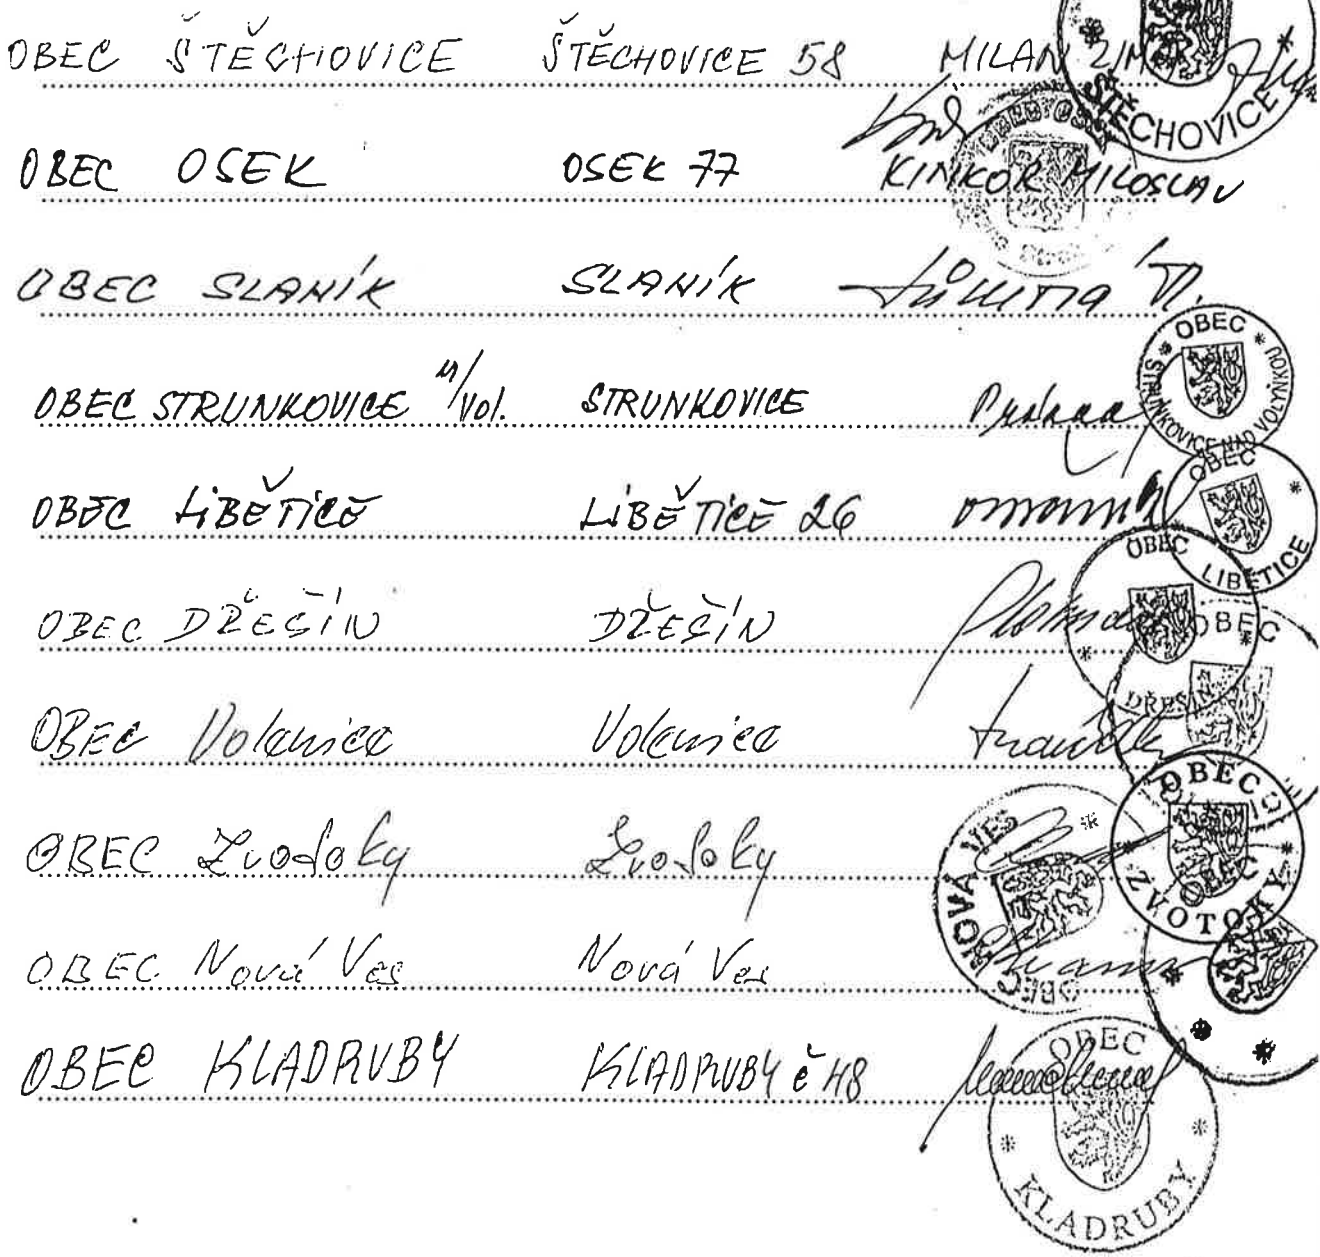 OBEC ŠTĚCHOVICE ŠTĚCHOVICE 58 MILAN
ŠTĚCHOVICE
OBEC OSEK OSEK 77 KINKOR MILOSLAV
OBEC SLANÍK SLANÍK
OBEC STRUNKOVICE n/Vol. STRUNKOVICE
* OBEC * STRUNKOVICE NAD VOLYŇKOU
OBEC LIBĚTICE LIBĚTICE 26
OBEC LIBĚTICE
OBEC DŘEŠÍN DŘEŠÍN
OBEC DŘEŠÍN
OBEC
OBEC Volenice Volenice
OBEC Zvotoky Zvotoky
OBEC ZVOTOKY
OBEC Nová Ves Nová Ves
OBEC NOVÁ VES
OBEC KLADRUBY KLADRUBY č 48
OBEC KLADRUBY